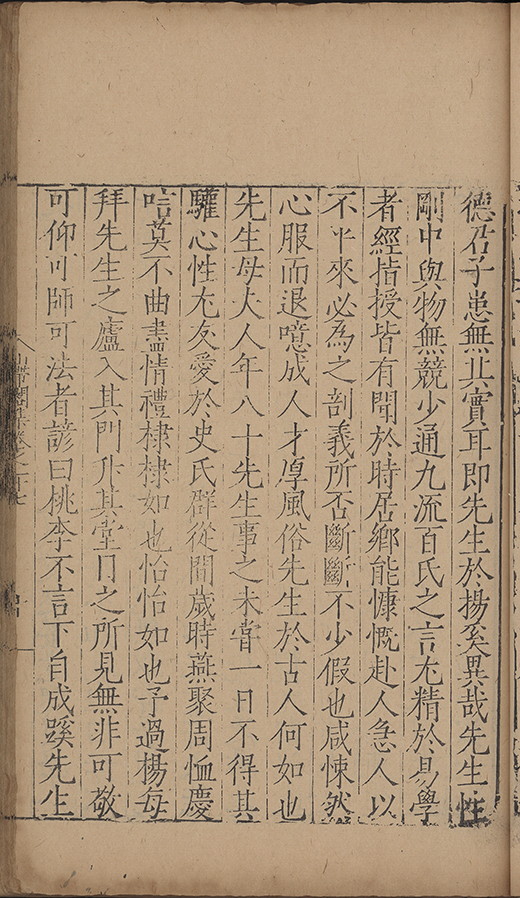 德君子患無其實耳即先生於揚奚異哉先生性
剛中與物無競少通九流百氏之言尤精於易學
者經指授皆有聞於時居鄉能慷慨赴人急人以
不平來必為之剖義所否斷斷不少假也咸悚然
心服而退噫成人才厚風俗先生於古人何如也
先生母夫人年八十先生事之未嘗一日不得其
驩心性尤友愛於史氏群從間歲時燕聚周恤慶
唁莫不曲盡情禮棣棣如也怡怡如也予過楊每
拜先生之廬入其門升其堂目之所見無非可敬
可仰可師可法者諺曰桃李不言下自成蹊先生